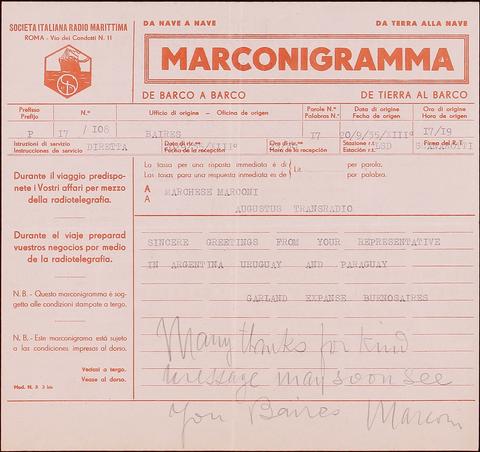 SOCIETÀ ITALIANA RADIO MARITTIMA
ROMA - Via dei Condotti N. 11
DA NAVE A NAVE
DA TERRA ALLA NAVE
MARCONIGRAMMA
DE BARCO A BARCO
DE TIERRA AL BARCO
Prefisso
Prefijo
N.º
Ufficio di origine - Oficina de origen
Parole N.º
Palabras N.º
Data di origine
Fecha de origen
Ora di origine
Hora de origen
P 17 / 108 BAIRES 17 20/9/35/XIIIº 17/19
Istruzioni di servizio
Instrucciones de servicio
DIRETTA
Data di ric.ne
Fecha de la recepción
Ora di ric.ne
Hora de la recepción
Stazione r.t.
Estación r.t.
Firma del R.T.
La tassa per una risposta immediata è di
La tasas para una respuesta immediata es de
Lit.
per parola.
por palabra.
Durante il viaggio predispo-
nete i Vostri affari per mezzo
della radiotelegrafia.
A
A
MARCHESE MARCONI
AUGUSTUS TRANSRADIO
Durante el viaje preparad
vuestros negocios por medio
de la radiotelegrafia.
SINCERE GREETINGS FROM YOUR REPRESENTATIVE
IN ARGENTINA URUGUAY AND PARAGUAY
GARLAND EXPANSE BUENOSAIRES
N. B. - Questo marconigramma è sog-
getto alle condizioni stampate a tergo.
N. B. - Este marconigrama está sujeto
a las condiciones impresas al dorso.
Vedasi a tergo.
Vease al dorso.
Mod. N. 5
Many thanks for kind
message may soon see
you Baires Marconi